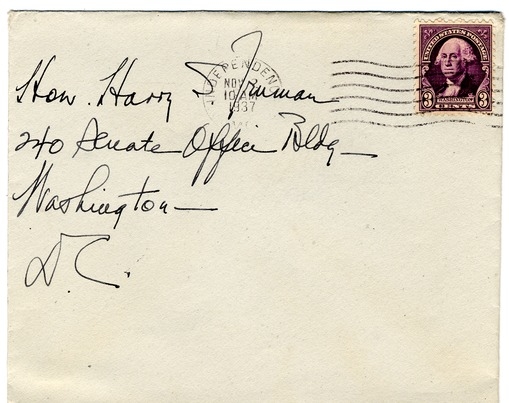 Hon. Harry S Truman
240 Senate Office Bldg
Washington
D.C.
INDEPENDEN
NOV
10 A
1937
UNITED STATES POSTAGE
WASHINGTON
3 CENTS 3